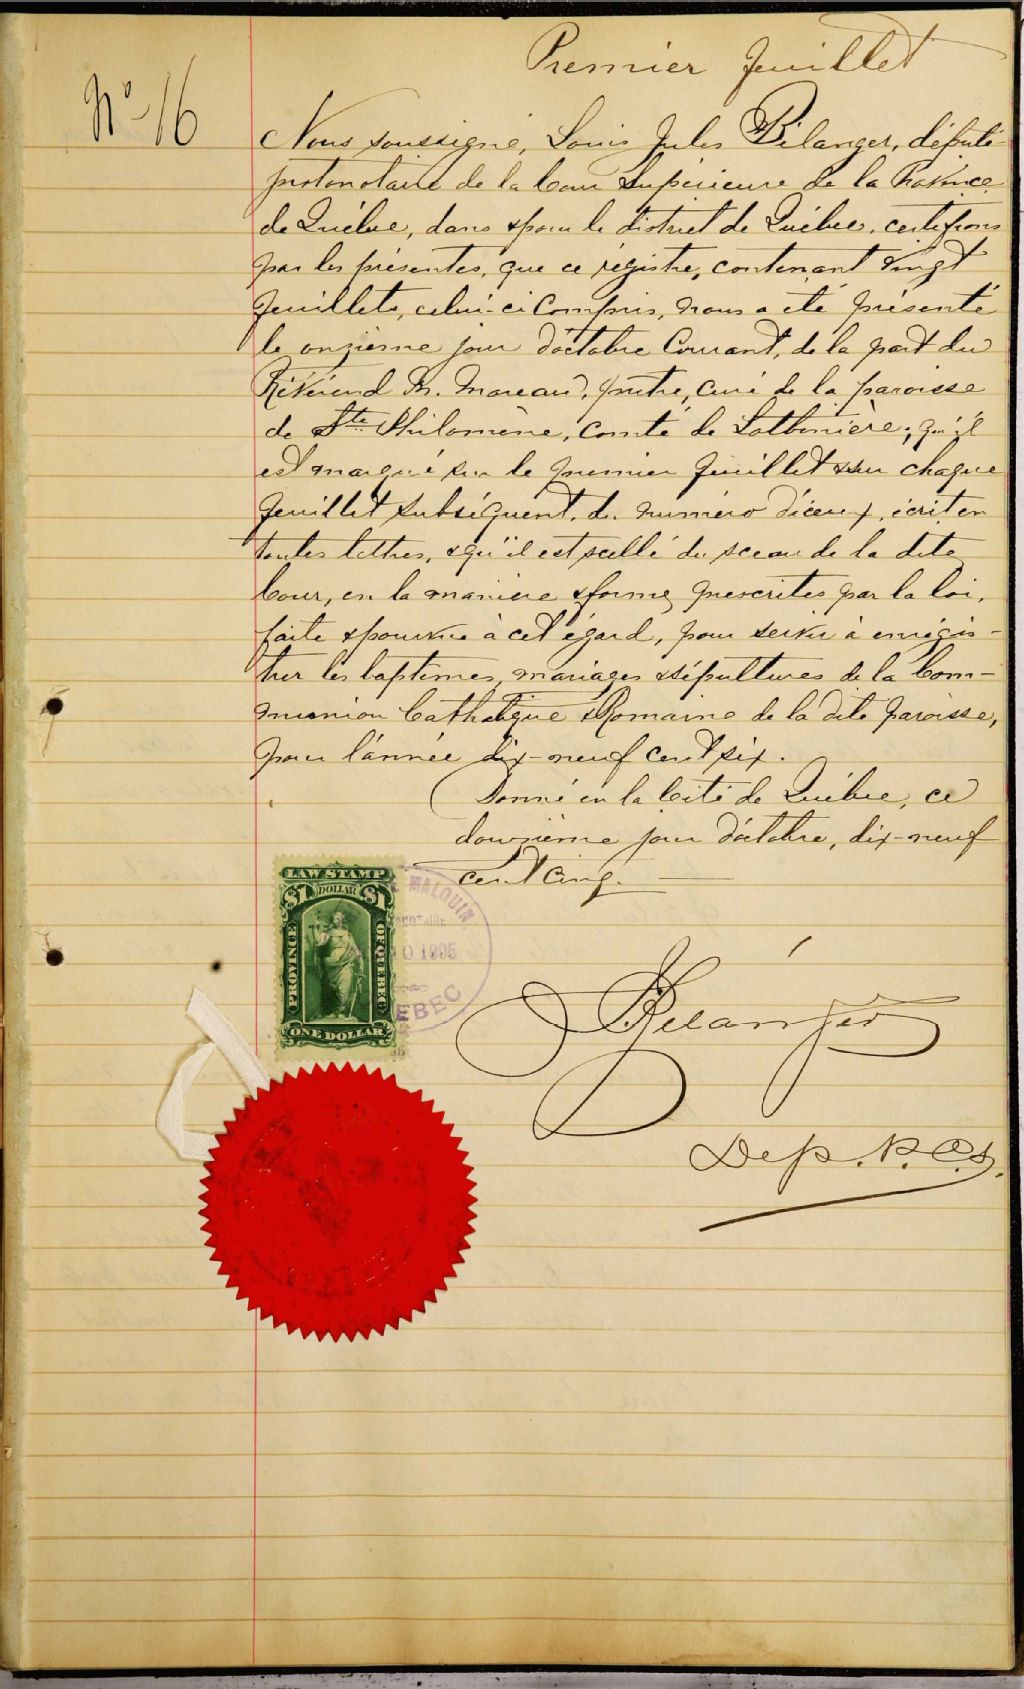 Premier feuillet
No 16
Nous soussigné, Louis Jules Bélanger, député-
protonotaire de la Cour Supérieure de la Province
de Québec, dans & pour le district de Québec, certifions
par les présentes, que ce régistre, contenant vingt
feuillets, celui-ci compris, nous a été présenté
le onzième jour d'octobre Courant, de la part du
Révérend M. Moreau, prêtre, curé de la paroisse
de Ste Philomène, Comté de Lotbinière; qu'il
est marqué sur le premier feuillet & sur chaque
feuillet subséquent, du numéro d'iceux, écrit en
toutes lettres, & qu'il est scellé du sceau de la dite
Cour, en la manière & forme prescrites par la loi,
faite & pourvue à cet égard, pour servir à enrégis-
trer les baptêmes, mariages & sépultures de la Com-
munion Catholique & Romaine de la dite paroisse,
pour l'année dix-neuf cent six.
Donné en la Cité de Québec, ce
douzième jour d'octobre, dix-neuf
cent cinq.
LAW STAMP
$1 DOLLAR $1
PROVINCE OF QUEBEC
ONE DOLLAR
MALOUIN
10 1905
EBEC
Bélanger
Dep. P.C.S.